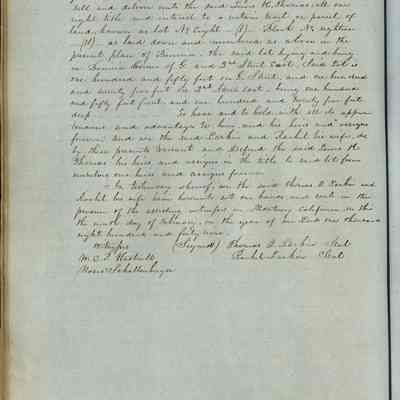 sell and deliver unto the said Lewis H. Thomas, all our
right title and interest to a certain tract or parcel of
land, known as Lot No Eight - (8) - Block No eighteen
- (18) - as laid down and numbered as above in the
present plan of Benicia - the said lot lying and being
in Benicia Corner of G and 2nd Street East, Said lot is
one hundred and fifty feet on G Street, and one hundred
and twenty five feet on 2nd Street East - being one hundred
and fifty feet front and one hundred and twenty five feet
deep. To have and to hold, with all its appur
tenances and advantages to him, and his heirs and assigns
forever and we the said Larkin and Rachel his wife, do
by these presents Warrant and Defend the said Lewis H.
Thomas his heirs and assigns in the title to said lot from
ourselves our heirs and assigns forever.
- In Testimony whereof, we the said Thomas O Larkin and
Rachel his wife have hereunto set our hands and seals in the
presence of the attesting witnesses in Monterey California on this
the ninth day of February, in the year of our Lord one thousand
eight hundred and forty nine.
Witness (Signed) Thomas O. Larkin Seal
W. C. F. Hastings Rachel Larkin Seal
Moses Schallenberger